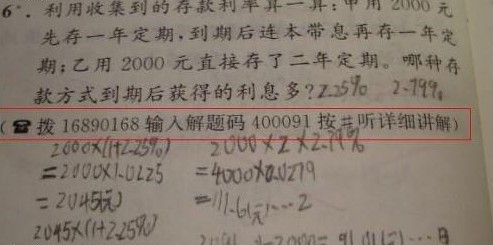 6*. 利用收集到的存款利率算一算：甲用 2000 元
先存一年定期，到期后连本带息再存一年定
期；乙用 2000 元直接存了二年定期。哪种存
款方式到期后获得的利息多？2.25% 2.79%
（☎ 拨 16890168 输入解题码 400091 按#听详细讲解）
2000×(1+2.25%) 2000×2×2.79%
=2000×1.0225 =4000×0.0279
=2045(元) =111.6(元)…2
2045×(1+2.25%)